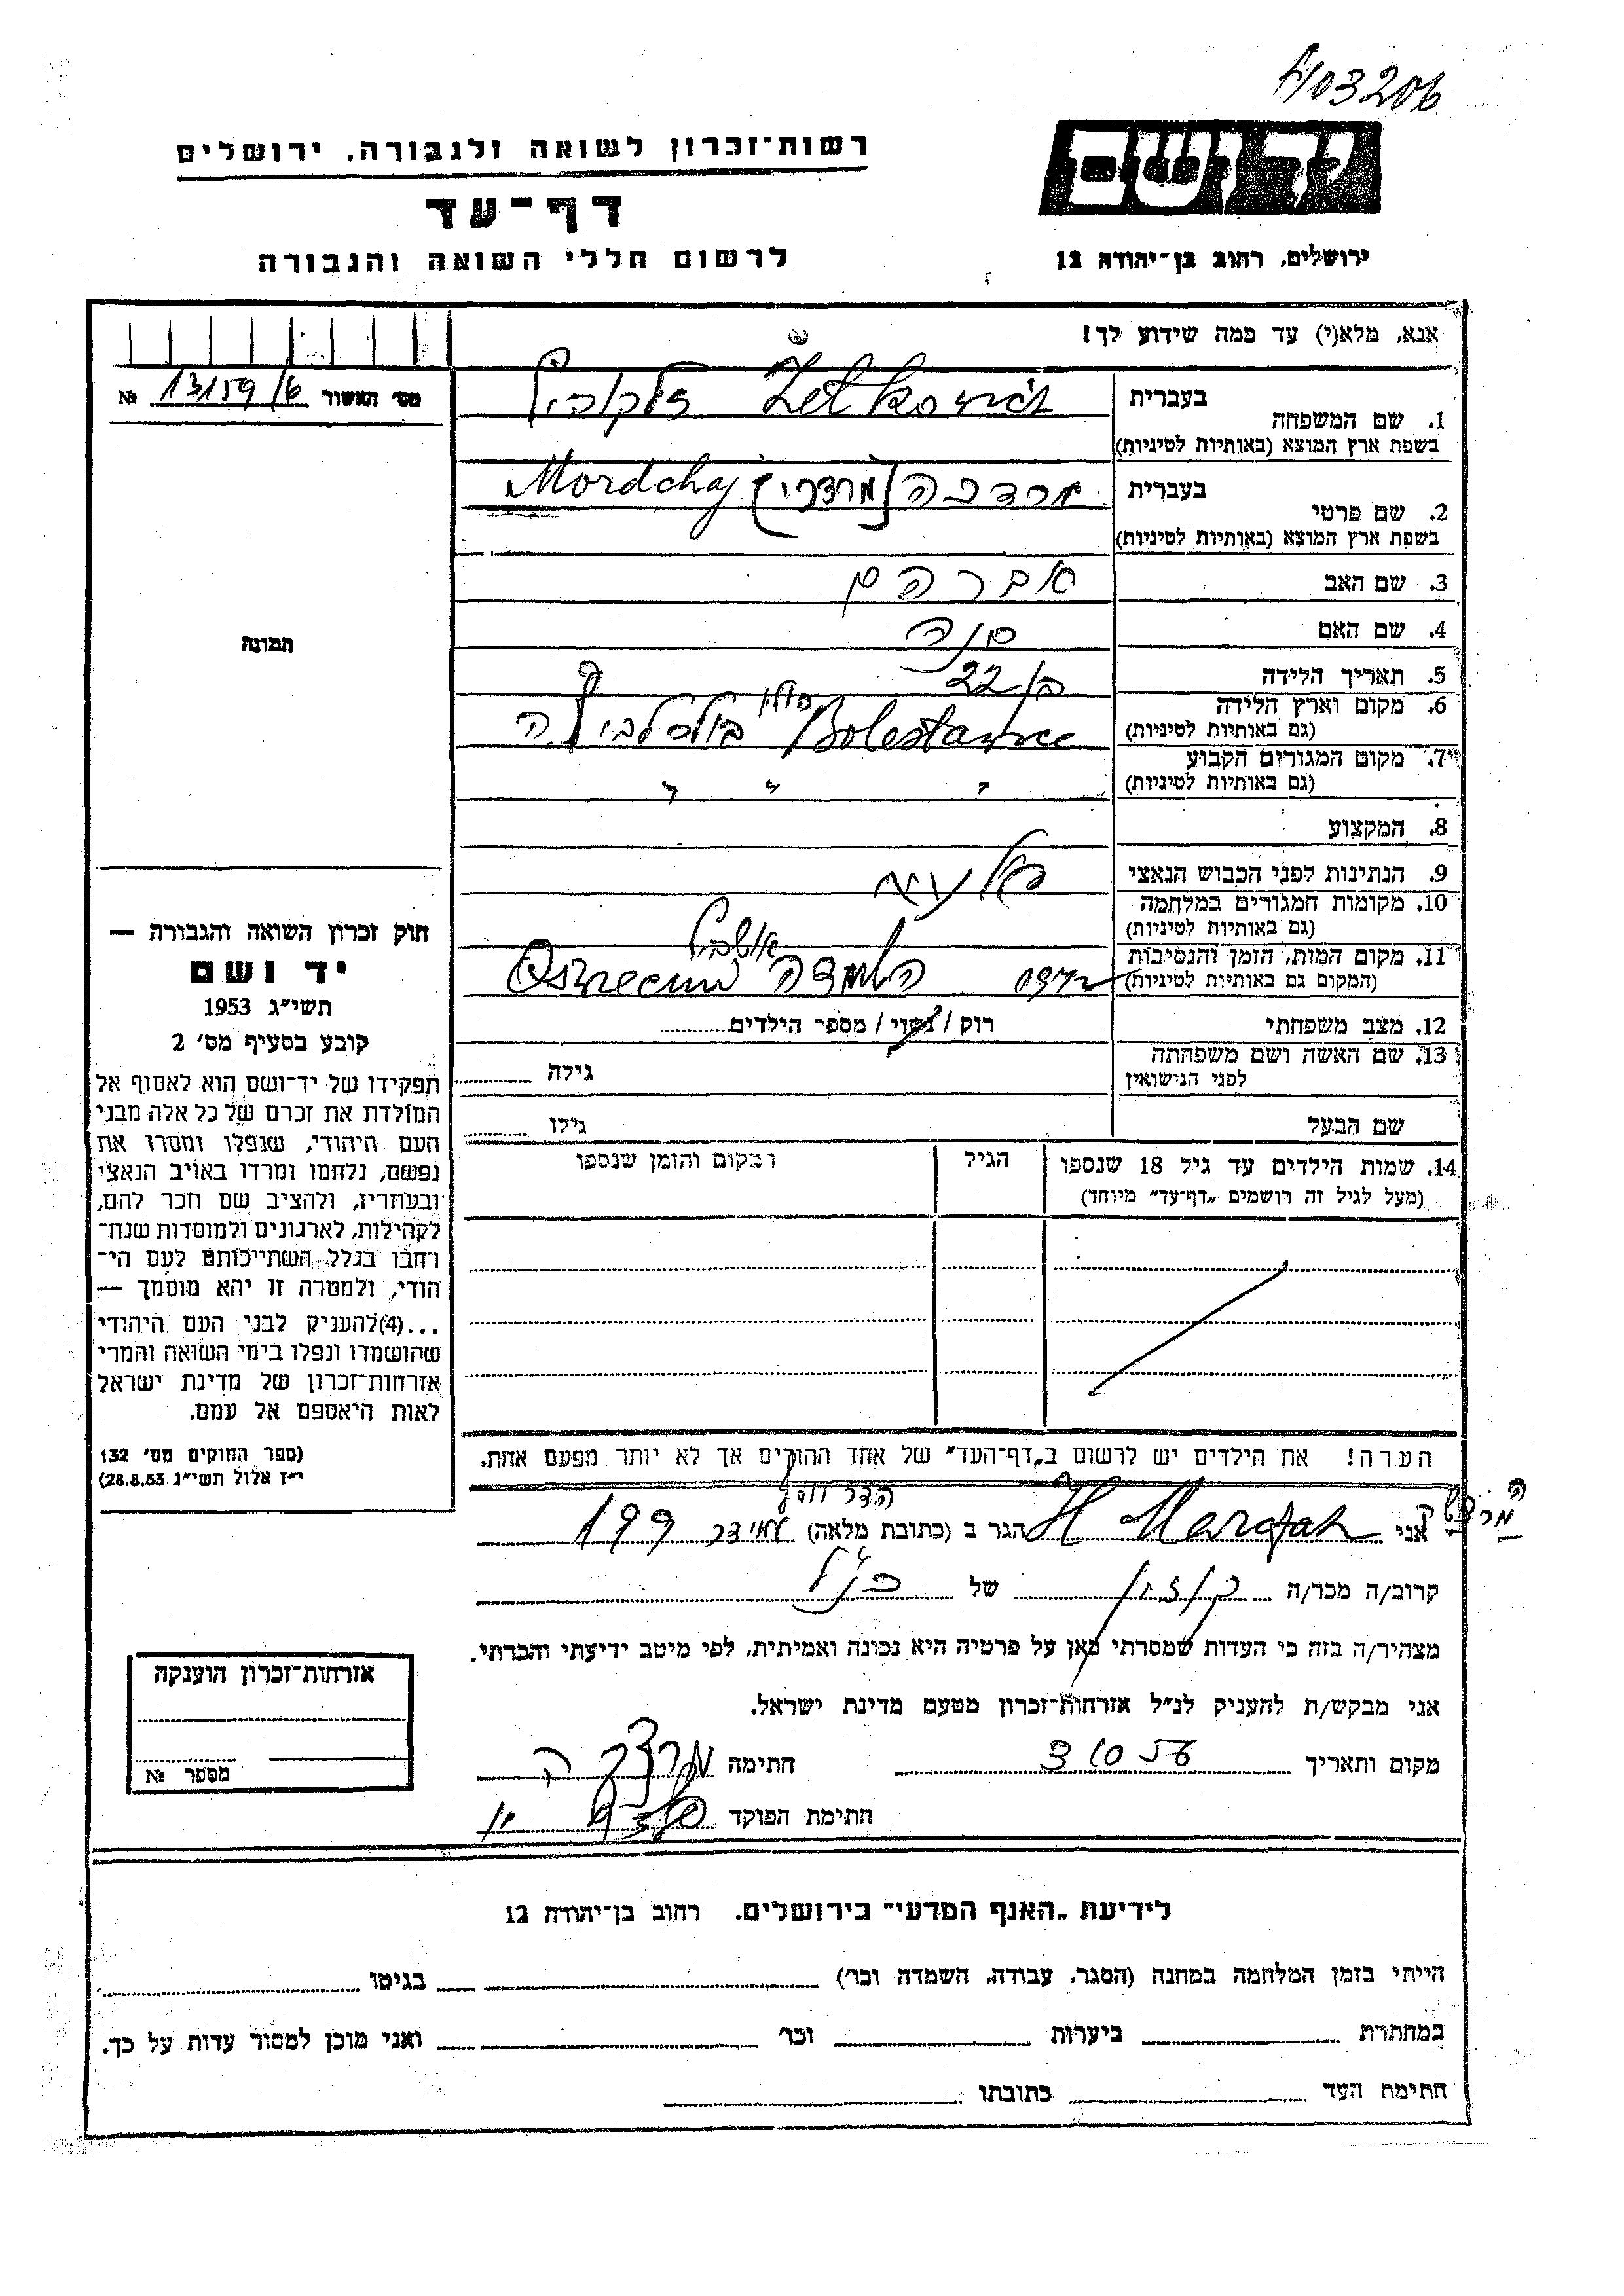 4103206
רשות־זכרון לשואה ולגבורה, ירושלים
דף־עד
לרשום חללי השואה והגבורה
יד ושם
ירושלים, רחוב בן־יהודה 12
אנא, מלא(י) עד כמה שידוע לך!
מס׳ האשור 13159/6 №
תמונה
1. שם המשפחה
בעברית
בשפת ארץ המוצא (באותיות לטיניות)
זלקוביץ Zelkovič
2. שם פרטי
בעברית
בשפת ארץ המוצא (באותיות לטיניות)
[מרדכי] Mordchaj
3. שם האב אברהם
4. שם האם
5. תאריך הלידה בן 22
6. מקום וארץ הלידה
(גם באותיות לטיניות)
פולין
7. מקום המגורים הקבוע
(גם באותיות לטיניות)
" " "
8. המקצוע
9. הנתינות לפני הכבוש הנאצי
10. מקומות המגורים במלחמה
(גם באותיות לטיניות)
11. מקום המות, הזמן והנסיבות
(המקום גם באותיות לטיניות)
השמדה
12. מצב משפחתי רוק / נשוי / מספר הילדים
13. שם האשה ושם משפחתה
לפני הנישואין
גילה
שם הבעל גילו
14. שמות הילדים עד גיל 18 שנספו
(מעל לגיל זה רושמים „דף־עד״ מיוחד)
הגיל
המקום והזמן שנספו
חוק זכרון השואה והגבורה —
יד ושם
תשי״ג 1953
קובע בסעיף מס׳ 2
תפקידו של יד־ושם הוא לאסוף אל
המולדת את זכרם של כל אלה מבני
העם היהודי, שנפלו ומסרו את
נפשם, נלחמו ומרדו באויב הנאצי
ובעוזריו, ולהציב שם וזכר להם,
לקהילות, לארגונים ולמוסדות שנח־
רחבו בגלל השתייכותם לעם הי־
הודי, ולמטרה זו יהא מוסמך —
...(4)להעניק לבני העם היהודי
שהושמדו ונפלו בימי השואה והמרי
אזרחות־זכרון של מדינת ישראל
לאות היאספם אל עמם.
(ספר החוקים מס׳ 132
י״ז אלול תשי״ג 28.8.53)
הערה! את הילדים יש לרשום ב„דף־העד״ של אחד ההורים אך לא יותר מפעם אחת.
אני הגר ב (כתובת מלאה) 199
קרוב/ה מכר/ה של
מצהיר/ה בזה כי העדות שמסרתי כאן על פרטיה היא נכונה ואמיתית, לפי מיטב ידיעתי והכרתי.
אני מבקש/ת להעניק לנ״ל אזרחות־זכרון מטעם מדינת ישראל.
מקום ותאריך 3 10 56 חתימה
חתימת הפוקד
אזרחות־זכרון הוענקה
מספר №
לידיעת „האגף המדעי״ בירושלים. רחוב בן־יהודה 12
הייתי בזמן המלחמה במחנה (הסגר, עבודה, השמדה וכו׳) בגיטו
במחתרת ביערות וכו׳ ואני מוכן למסור עדות על כך.
חתימת העד כתובתו